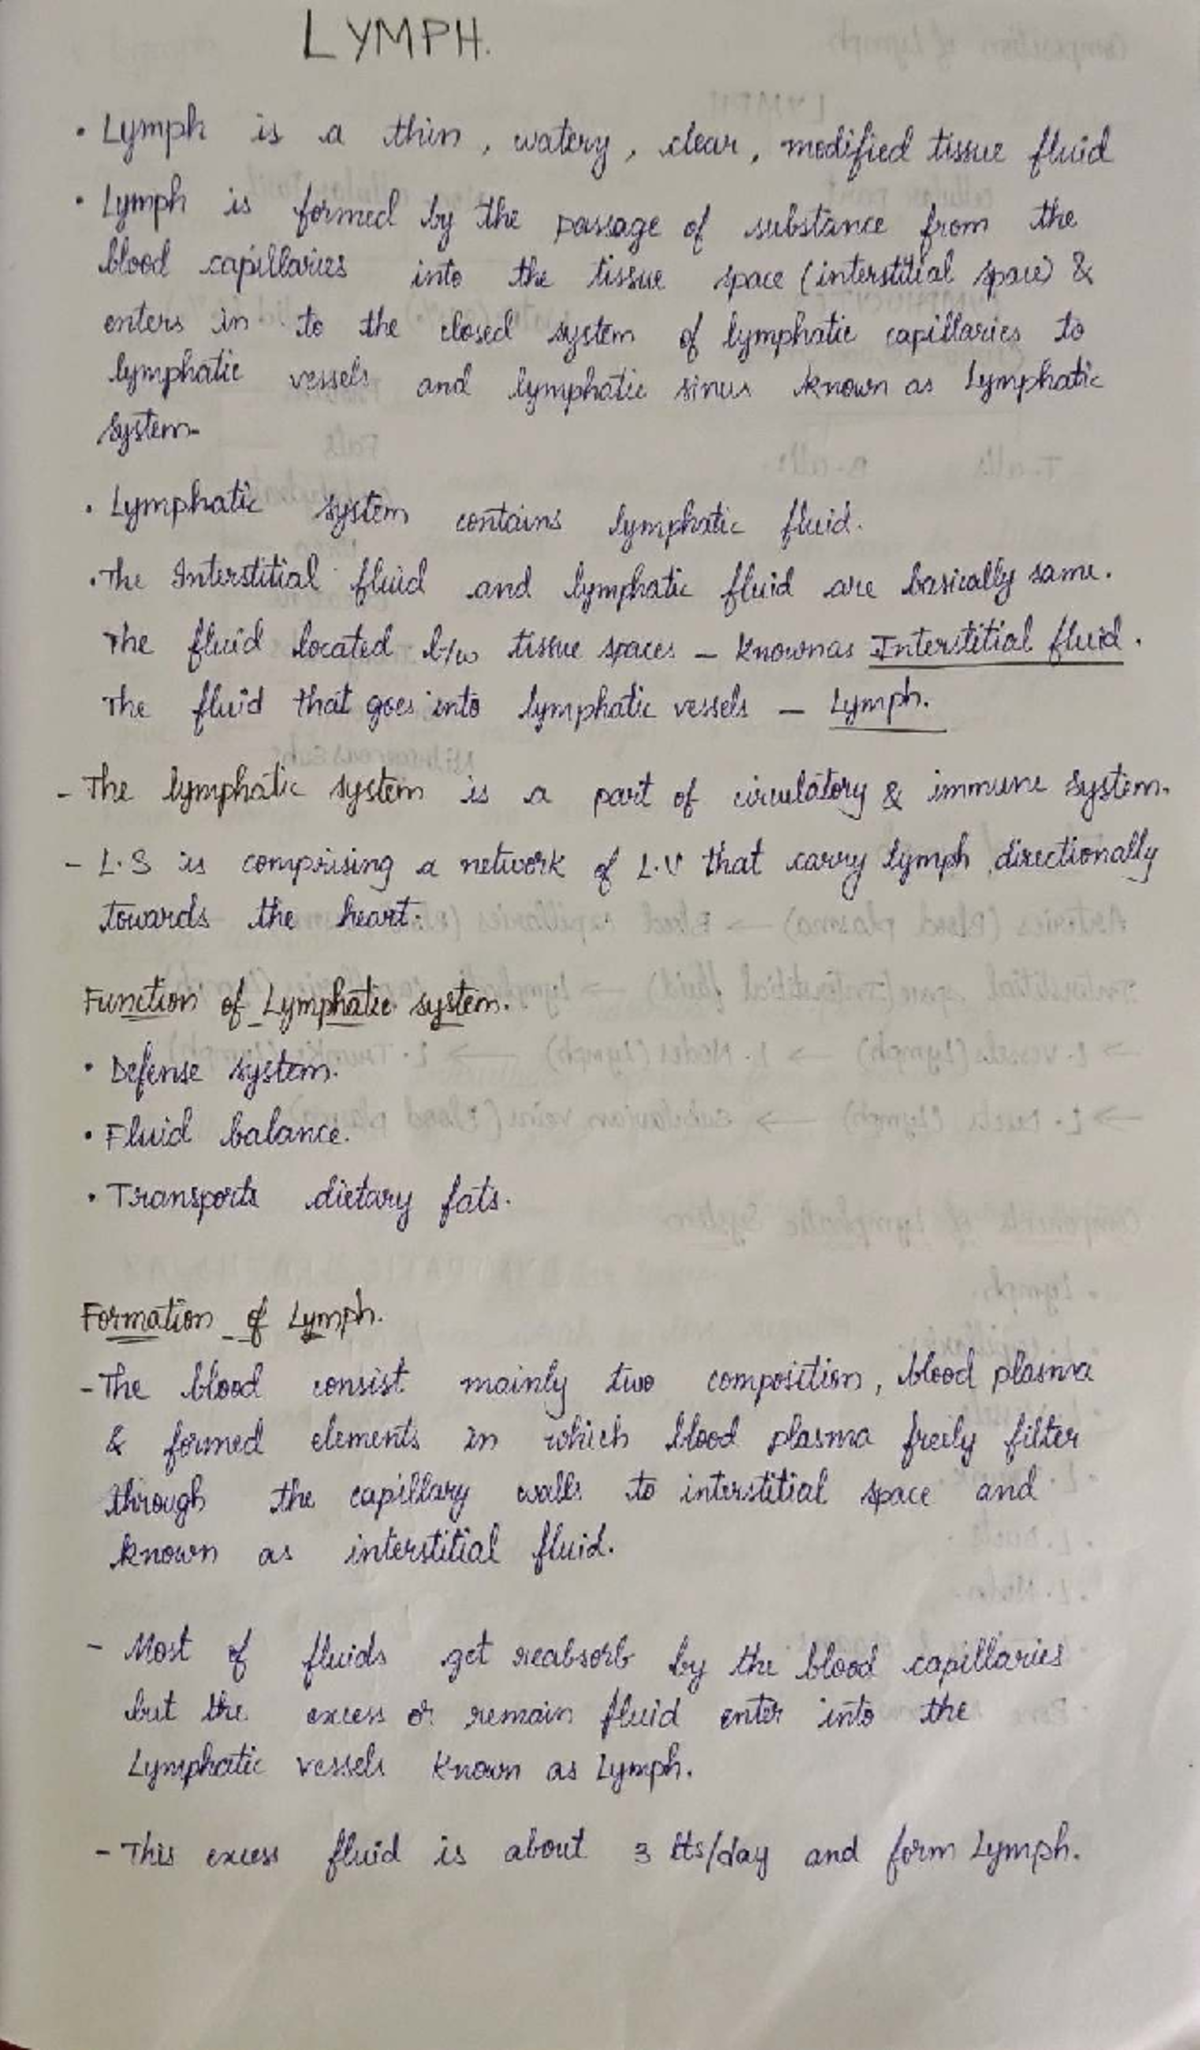 LYMPH.
• Lymph is a thin, watery, clear, modified tissue fluid
• Lymph is formed by the passage of substance from the
blood capillaries into the tissue space (interstitial space) &
enters in to the closed system of lymphatic capillaries to
lymphatic vessels and lymphatic sinus known as Lymphatic
system-
• Lymphatic system contains lymphatic fluid.
• The Interstitial fluid and lymphatic fluid are basically same.
The fluid located b/w tissue spaces – known as Interstitial fluid.
The fluid that goes into lymphatic vessels – Lymph.
- The lymphatic system is a part of circulatory & immune system.
- L.S is comprising a network of L.V that carry lymph directionally
towards the heart.
Function of Lymphatic system.
• Defense system.
• Fluid balance.
• Transports dietary fats.
Formation of Lymph.
- The blood consist mainly two composition, blood plasma
& formed elements in which blood plasma freely filter
through the capillary walls to interstitial space and
known as interstitial fluid.
- Most of fluids get reabsorb by the blood capillaries
but the excess or remain fluid enter into the
Lymphatic vessels known as Lymph.
- This excess fluid is about 3 lts/day and form Lymph.